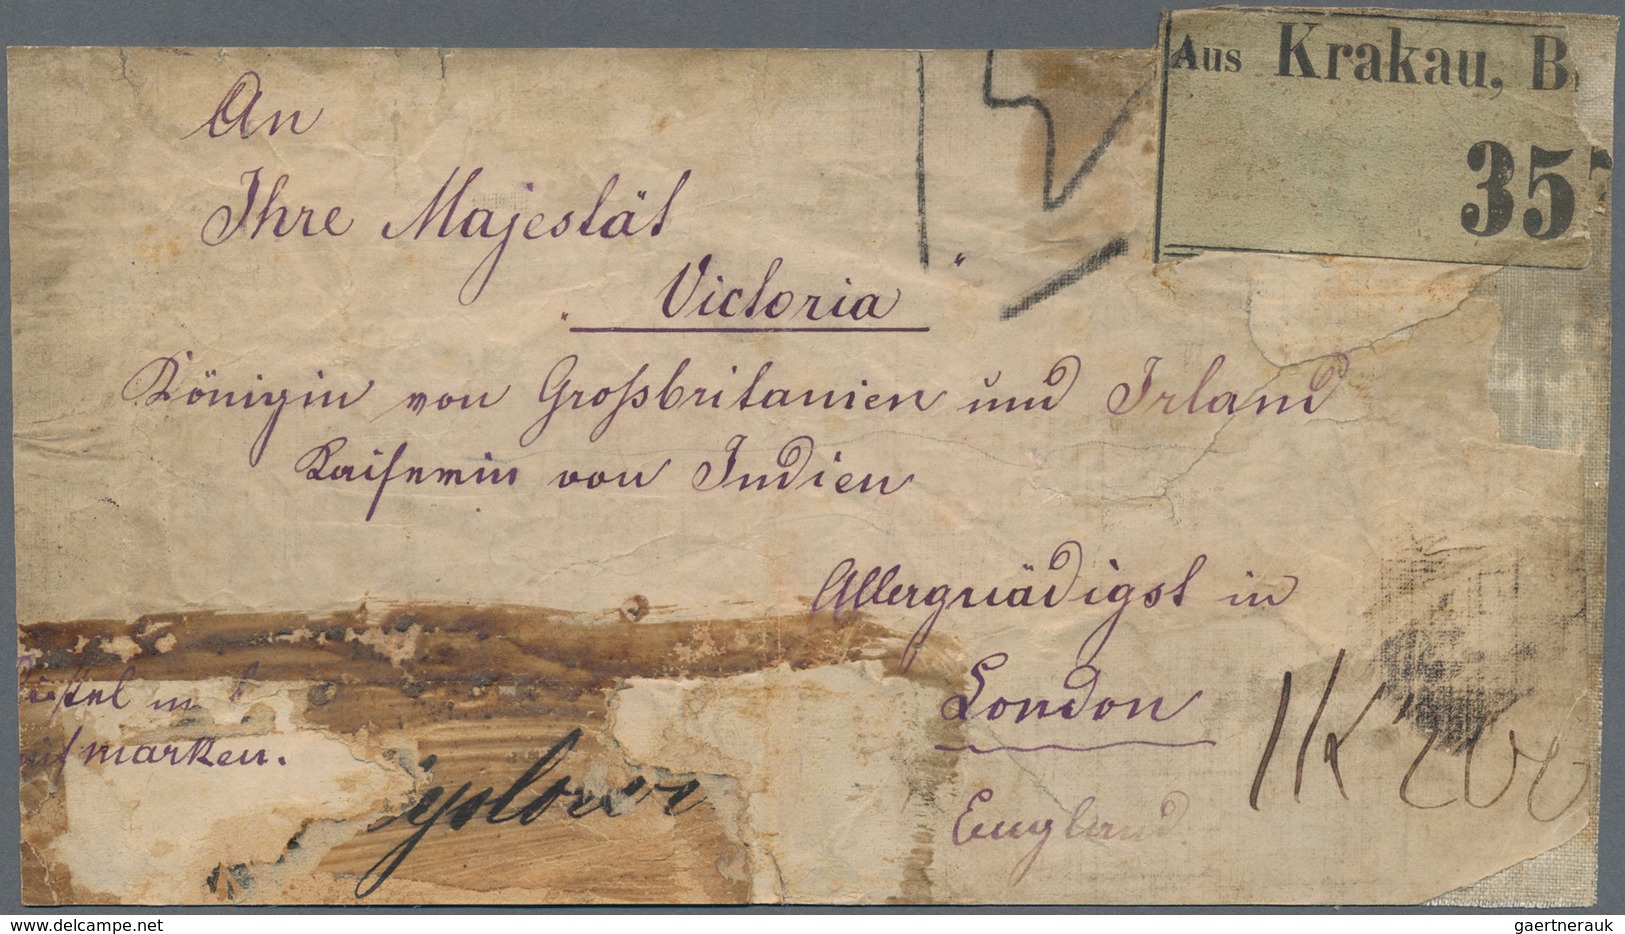 Aus Krakau, B
35
An
Ihre Majestät
"Victoria"
Königin von Großbritanien und Irland
Kaiserin von Indien
Allergnädigst in
London
England
marken.
1K 200
delcampe.net
gaertnerauk